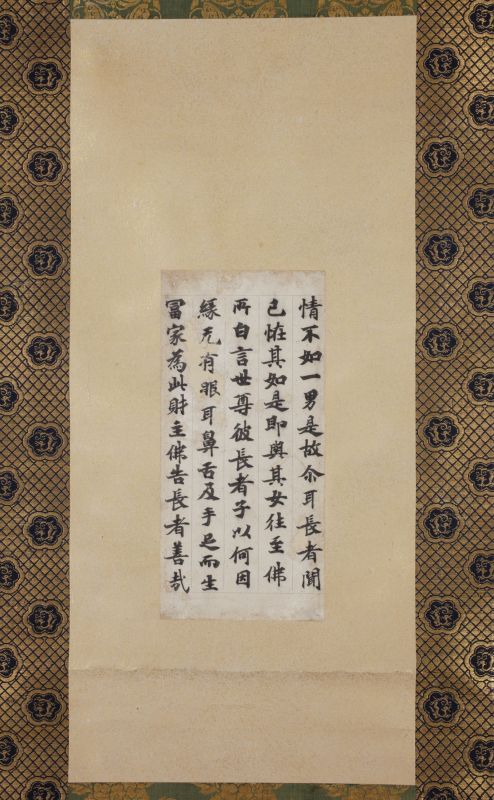 情不如一男是故尒耳長者聞
已恠其如是即與其女往至佛
所白言世尊彼長者子以何因
緣无有眼耳鼻舌及手足而生
冨家為此財主佛告長者善哉